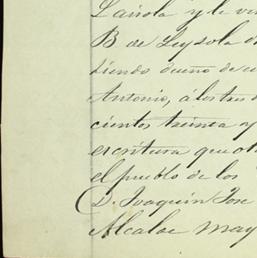 Larrola y le ve
B de Leysola d
siendo dueño de u
Antonio, á los tres d
cientos treinta y
escritura que ot
el pueblo de los
D. Joaquin Jose
Alcalde may